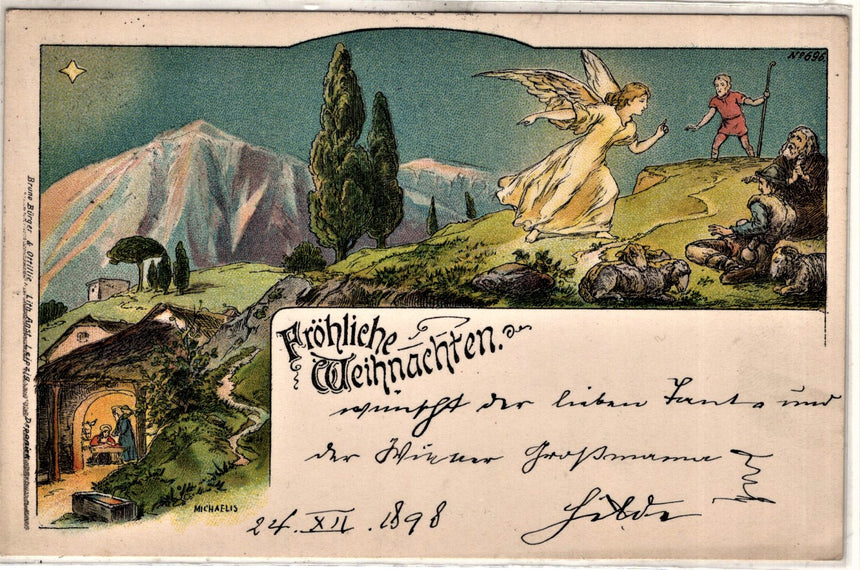 No 696.
Fröhliche
Weihnachten.
wünscht der lieben Tante und
der Wiener Großmama
Hilde
24. XII. 1898
MICHAELIS
Bruno Bürger & Ottillie Lith. Anst. Leipzig